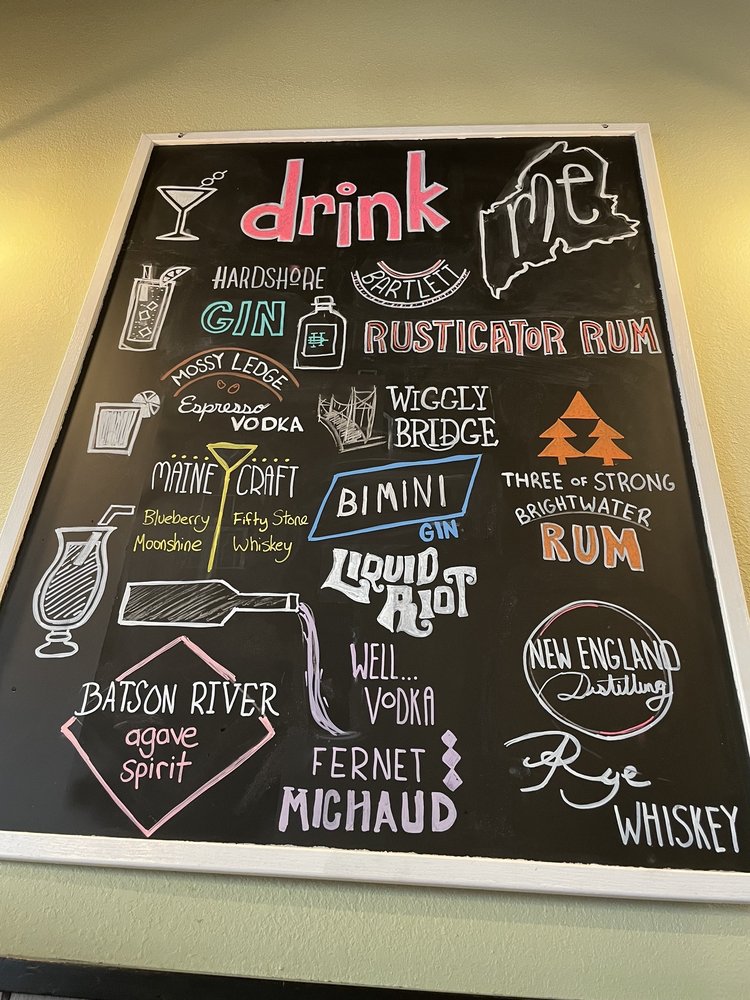 drink
me
HARDSHORE
GIN
H
BARTLETT
RUSTICATOR RUM
MOSSY LEDGE
Espresso
VODKA
WIGGLY
BRIDGE
MAINE CRAFT
Blueberry
Moonshine
Fifty Stone
Whiskey
BIMINI
GIN
THREE OF STRONG
BRIGHTWATER
RUM
LIQUID
RIOT
WELL...
VODKA
FERNET
MICHAUD
BATSON RIVER
agave
spirit
NEW ENGLAND
Distilling
Rye
WHISKEY